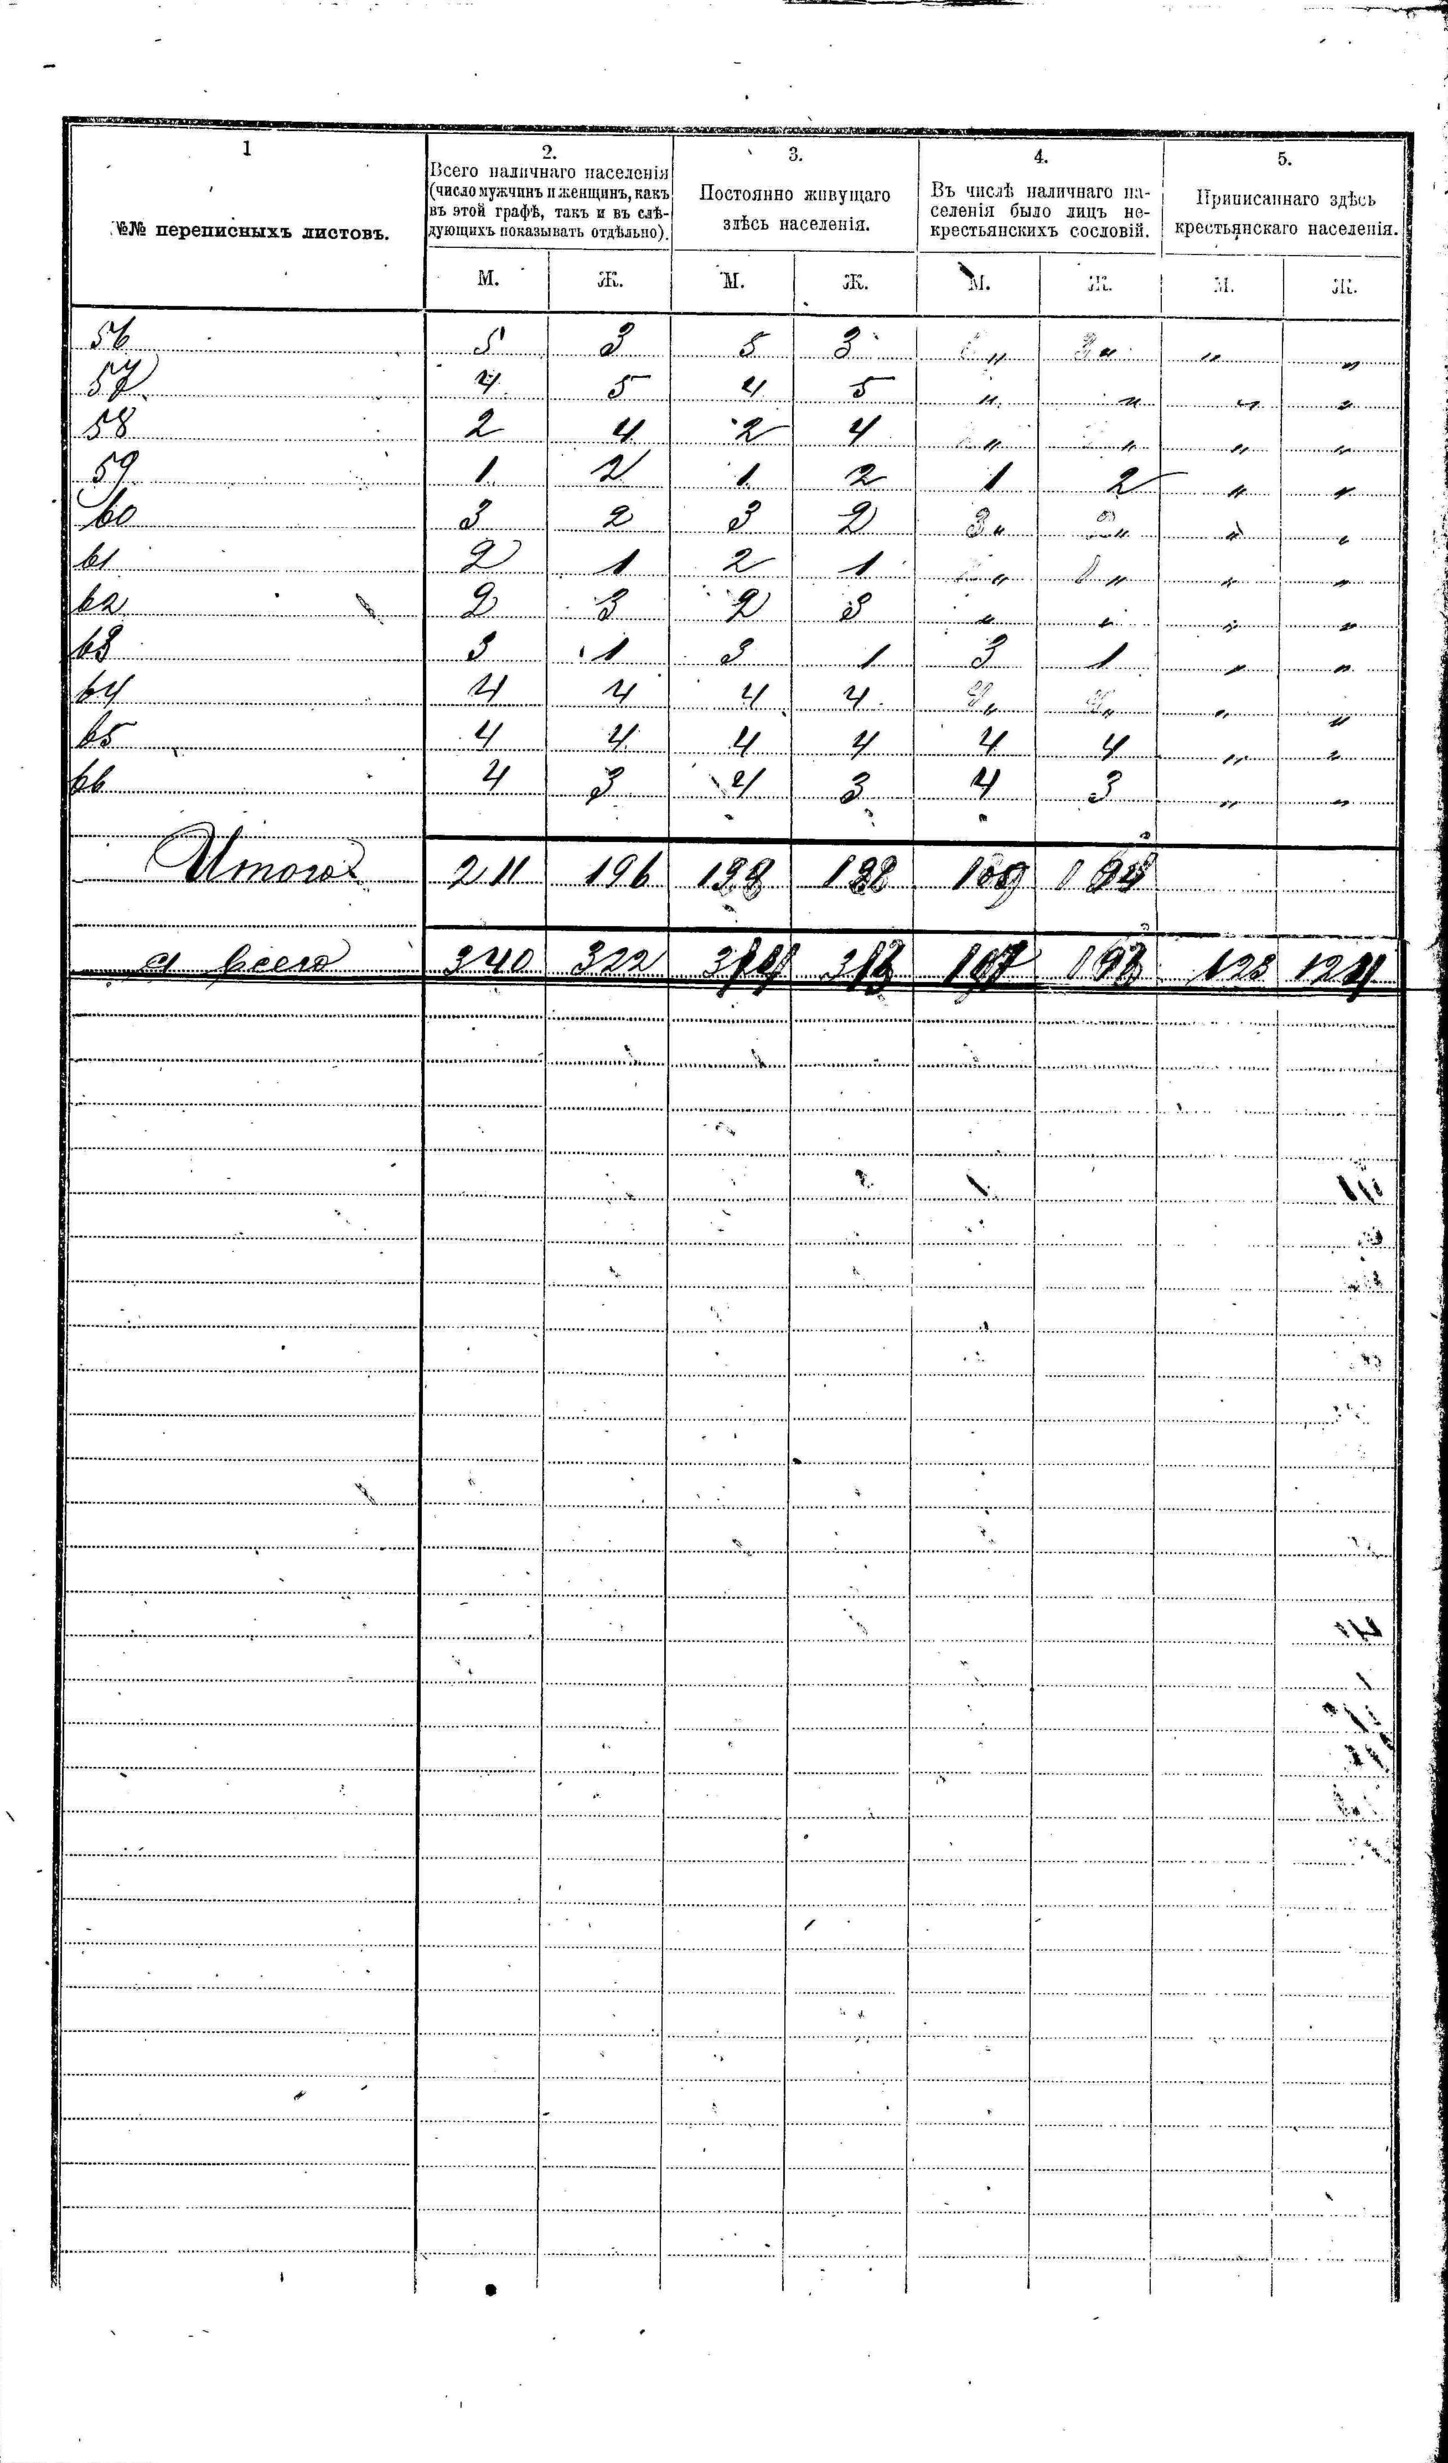 1 2. 3. 4. 5.
№№ переписныхъ листовъ.
Всего наличнаго населенія
(число мужчинъ и женщинъ, какъ
въ этой графѣ, такъ и въ слѣ-
дующихъ показывать отдѣльно).
Постоянно живущаго
здѣсь населенія.
Въ числѣ наличнаго на-
селенія было лицъ не-
крестьянскихъ сословій.
Приписаннаго здѣсь
крестьянскаго населенія.
М. Ж. М. Ж. М. Ж. М. Ж.
56 5 3 5 3 " " " "
57 4 5 4 5 " " " "
58 2 4 2 4 " " " "
59 1 2 1 2 1 2 " "
60 3 2 3 2 " " " "
61 2 1 2 1 " " " "
62 2 3 2 3 " " " "
63 3 1 3 1 3 1 " "
64 4 4 4 4 " " " "
65 4 4 4 4 4 4 " "
66 4 3 4 3 4 3 " "
Итого 211 196
а всего 340 322 123